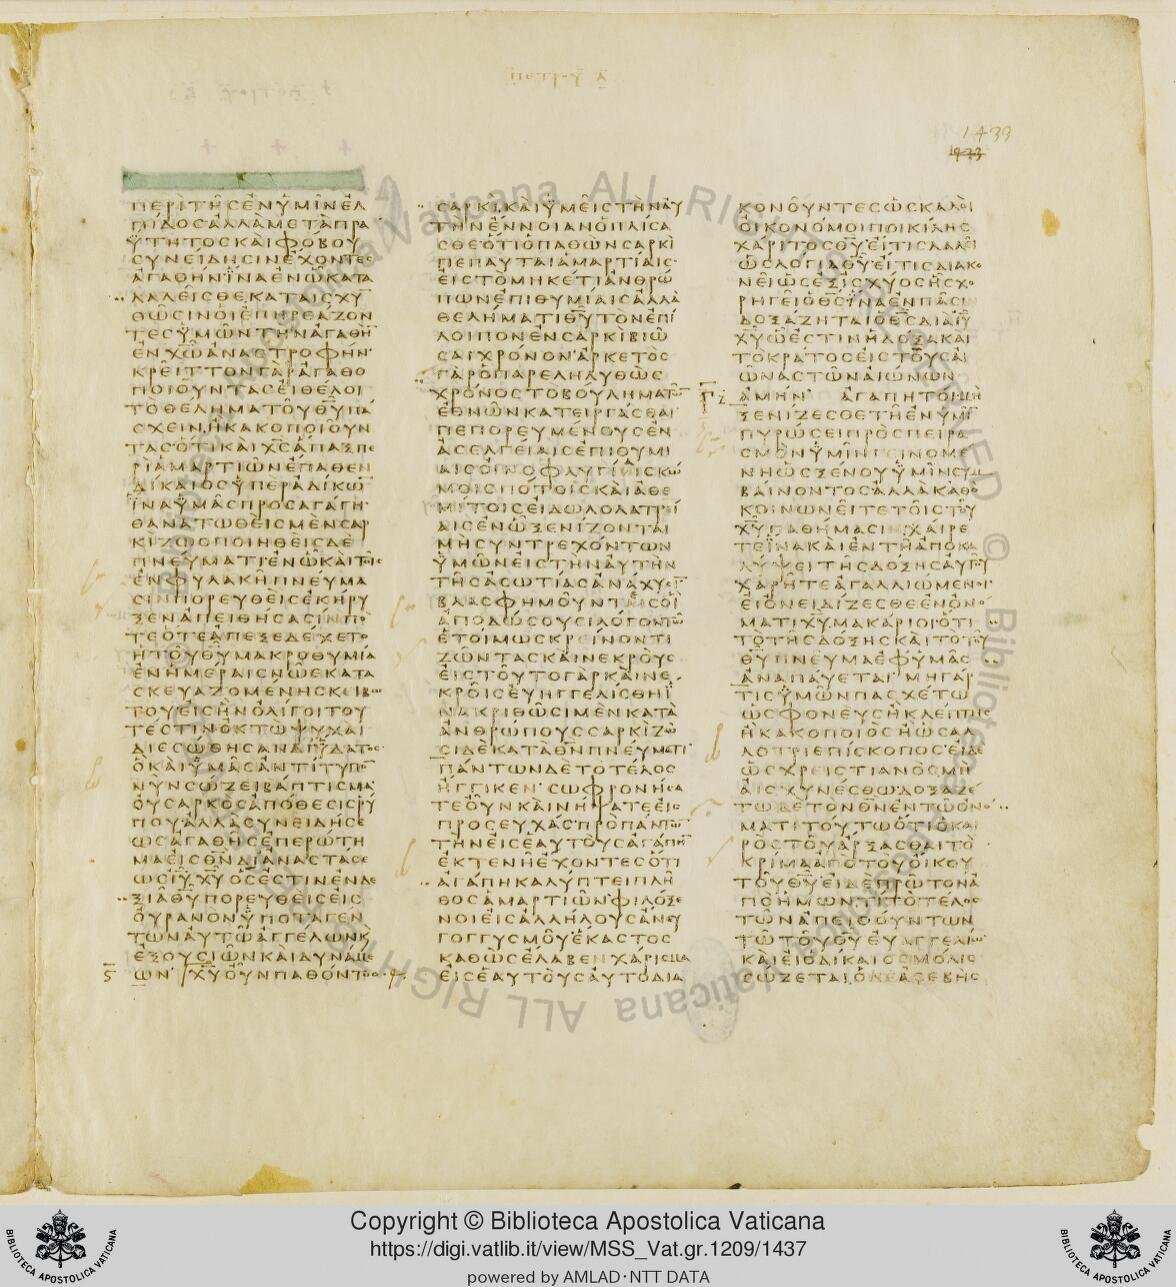 1433
ΠΕΡΙΤΗΣΕΝΥΜΙΝΕΛ
ΠΙΔΟΣΑΛΛΑΜΕΤΑΠΡΑ
ΥΤΗΤΟΣΚΑΙΦΟΒΟΥ
ΣΥΝΕΙΔΗΣΙΝΕΧΟΝΤΕΣ
ΑΓΑΘΗΝΙΝΑΕΝΩΚΑΤΑ
ΛΑΛΕΙΣΘΕΚΑΤΑΙΣΧΥ
ΘΩΣΙΝΟΙΕΠΗΡΕΑΖΟΝ
ΤΕΣΥΜΩΝΤΗΝΑΓΑΘΗ̅
ΕΝΧΩ̅ΑΝΑΣΤΡΟΦΗΝ
ΚΡΕΙΤΤΟΝΓΑΡΑΓΑΘΟ
ΠΟΙΟΥΝΤΑΣΕΙΘΕΛΟΙ
ΤΟΘΕΛΗΜΑΤΟΥΘΥ̅ΠΑ
ΣΧΕΙΝΗΚΑΚΟΠΟΙΟΥΝ
ΤΑΣΟΤΙΚΑΙΧΣ̅ΑΠΑΞΠΕ
ΡΙΑΜΑΡΤΙΩΝΕΠΑΘΕΝ
ΔΙΚΑΙΟΣΥΠΕΡΑΔΙΚΩ̅
ΙΝΑΥΜΑΣΠΡΟΣΑΓΑΓΗ
ΘΑΝΑΤΩΘΕΙΣΜΕΝΣΑΡ
ΚΙΖΩΟΠΟΙΗΘΕΙΣΔΕ
ΠΝΕΥΜΑΤΙΕΝΩΚΑΙΤΟΙΣ
ΕΝΦΥΛΑΚΗΠΝΕΥΜΑ
ΣΙΝΠΟΡΕΥΘΕΙΣΕΚΗΡΥ
ΞΕΝΑΠΕΙΘΗΣΑΣΙΝΠΟ
ΤΕΟΤΕΑΠΕΞΕΔΕΧΕΤΟ
ΗΤΟΥΘΥ̅ΜΑΚΡΟΘΥΜΙΑ
ΕΝΗΜΕΡΑΙΣΝΩΕΚΑΤΑ
ΣΚΕΥΑΖΟΜΕΝΗΣΚΕΙΒΩ
ΤΟΥΕΙΣΗΝΟΛΙΓΟΙΤΟΥ
ΤΕΣΤΙΝΟΚΤΩΨΥΧΑΙ
ΔΙΕΣΩΘΗΣΑΝΔΙΥΔΑΤΟΣ
ΟΚΑΙΥΜΑΣΑΝΤΙΤΥΠΟ̅
ΝΥΝΣΩΖΕΙΒΑΠΤΙΣΜΑ
ΟΥΣΑΡΚΟΣΑΠΟΘΕΣΙΣΡΥ
ΠΟΥΑΛΛΑΣΥΝΕΙΔΗΣΕ
ΩΣΑΓΑΘΗΣΕΠΕΡΩΤΗ
ΜΑΕΙΣΘΝ̅ΔΙΑΝΑΣΤΑΣΕ
ΩΣΙΥ̅ΧΥ̅ΟΣΕΣΤΙΝΕΝΔΕ
ΞΙΑΘΥ̅ΠΟΡΕΥΘΕΙΣΕΙΣ
ΟΥΡΑΝΟΝΥΠΟΤΑΓΕΝ
ΤΩΝΑΥΤΩΑΓΓΕΛΩΝΚ
ΕΞΟΥΣΙΩΝΚΑΙΔΥΝΑΜΕ
ΩΝ ΧΥ̅ΟΥΝΠΑΘΟΝΤΟΣ
ΣΑΡΚΙΚΑΙΥΜΕΙΣΤΗΝΑΥ
ΤΗΝΕΝΝΟΙΑΝΟΠΛΙΣΑ
ΣΘΕΟΤΙΟΠΑΘΩΝΣΑΡΚΙ
ΠΕΠΑΥΤΑΙΑΜΑΡΤΙΑΙΣ
ΕΙΣΤΟΜΗΚΕΤΙΑΝΘΡΩ
ΠΩΝΕΠΙΘΥΜΙΑΙΣΑΛΛΑ
ΘΕΛΗΜΑΤΙΘΥ̅ΤΟΝΕΠΙ
ΛΟΙΠΟΝΕΝΣΑΡΚΙΒΙΩ
ΣΑΙΧΡΟΝΟΝΑΡΚΕΤΟΣ
ΓΑΡΟΠΑΡΕΛΗΛΥΘΩΣ
ΧΡΟΝΟΣΤΟΒΟΥΛΗΜΑΤΩ̅
ΕΘΝΩΝΚΑΤΕΙΡΓΑΣΘΑΙ
ΠΕΠΟΡΕΥΜΕΝΟΥΣΕΝ
ΑΣΕΛΓΕΙΑΙΣΕΠΙΘΥΜΙ
ΑΙΣΟΙΝΟΦΛΥΓΙΑΙΣΚΩ
ΜΟΙΣΠΟΤΟΙΣΚΑΙΑΘΕ
ΜΙΤΟΙΣΕΙΔΩΛΟΛΑΤΡΙ
ΑΙΣΕΝΩΞΕΝΙΖΟΝΤΑΙ
ΜΗΣΥΝΤΡΕΧΟΝΤΩΝ
ΥΜΩΝΕΙΣΤΗΝΑΥΤΗΝ
ΤΗΣΑΣΩΤΙΑΣΑΝΑΧΥΣΙ̅
ΒΛΑΣΦΗΜΟΥΝΤΕΣΟΙ
ΑΠΟΔΩΣΟΥΣΙΛΟΓΟΝΤΩ
ΕΤΟΙΜΩΣΚΡΕΙΝΟΝΤΙ
ΖΩΝΤΑΣΚΑΙΝΕΚΡΟΥΣ
ΕΙΣΤΟΥΤΟΓΑΡΚΑΙΝΕ
ΚΡΟΙΣΕΥΗΓΓΕΛΙΣΘΗΙ
ΝΑΚΡΙΘΩΣΙΜΕΝΚΑΤΑ
ΑΝΘΡΩΠΟΥΣΣΑΡΚΙΖΩ
ΣΙΔΕΚΑΤΑΘΝ̅ΠΝΕΥΜΑΤΙ
ΠΑΝΤΩΝΔΕΤΟΤΕΛΟΣ
ΗΓΓΙΚΕΝΣΩΦΡΟΝΗΣΑ
ΤΕΟΥΝΚΑΙΝΗΨΑΤΕΕΙΣ
ΠΡΟΣΕΥΧΑΣΠΡΟΠΑΝΤΩ̅
ΤΗΝΕΙΣΕΑΥΤΟΥΣΑΓΑΠΗ̅
ΕΚΤΕΝΗΕΧΟΝΤΕΣΟΤΙ
ΑΓΑΠΗΚΑΛΥΠΤΕΙΠΛΗ
ΘΟΣΑΜΑΡΤΙΩΝΦΙΛΟΞΕ
ΝΟΙΕΙΣΑΛΛΗΛΟΥΣΑΝΕΥ
ΓΟΓΓΥΣΜΟΥΕΚΑΣΤΟΣ
ΚΑΘΩΣΕΛΑΒΕΝΧΑΡΙΣΜΑ
ΕΙΣΕΑΥΤΟΥΣΑΥΤΟΔΙΑ
ΚΟΝΟΥΝΤΕΣΩΣΚΑΛΟΙ
ΟΙΚΟΝΟΜΟΙΠΟΙΚΙΛΗΣ
ΧΑΡΙΤΟΣΘΥ̅ΕΙΤΙΣΛΑΛΕΙ
ΩΣΛΟΓΙΑΘΥ̅ΕΙΤΙΣΔΙΑΚΟ
ΝΕΙΩΣΕΞΙΣΧΥΟΣΗΣΧΟ
ΡΗΓΕΙΟΘΣ̅ΙΝΑΕΝΠΑΣΙ
ΔΟΞΑΖΗΤΑΙΟΘΣ̅ΔΙΑΙΥ̅
ΧΥ̅ΩΕΣΤΙΝΗΔΟΞΑΚΑΙ
ΤΟΚΡΑΤΟΣΕΙΣΤΟΥΣΑΙ
ΩΝΑΣΤΩΝΑΙΩΝΩΝ
ΑΜΗΝ ΑΓΑΠΗΤΟΙΜΗ
ΞΕΝΙΖΕΣΘΕΤΗΕΝΥΜΙ̅
ΠΥΡΩΣΕΙΠΡΟΣΠΕΙΡΑ
ΣΜΟΝΥΜΙΝΓΕΙΝΟΜΕ
ΝΗΩΣΞΕΝΟΥΥΜΙΝΣΥΜ
ΒΑΙΝΟΝΤΟΣΑΛΛΑΚΑΘΟ
ΚΟΙΝΩΝΕΙΤΕΤΟΙΣΤΟΥ
ΧΥ̅ΠΑΘΗΜΑΣΙΝΧΑΙΡΕ
ΤΕΙΝΑΚΑΙΕΝΤΗΑΠΟΚΑ
ΛΥΨΕΙΤΗΣΔΟΞΗΣΑΥΤΟΥ
ΧΑΡΗΤΕΑΓΑΛΛΙΩΜΕΝΟΙ
ΕΙΟΝΕΙΔΙΖΕΣΘΕΕΝΟΝΟ
ΜΑΤΙΧΥ̅ΜΑΚΑΡΙΟΙΟΤΙ
ΤΟΤΗΣΔΟΞΗΣΚΑΙΤΟΤΟΥ
ΘΥ̅ΠΝΕΥΜΑΕΦΥΜΑΣ
ΑΝΑΠΑΥΕΤΑΙΜΗΓΑΡ
ΤΙΣΥΜΩΝΠΑΣΧΕΤΩ
ΩΣΦΟΝΕΥΣΗΚΛΕΠΤΗΣ
ΗΚΑΚΟΠΟΙΟΣΗΩΣΑΛ
ΛΟΤΡΙΕΠΙΣΚΟΠΟΣΕΙΔΕ
ΩΣΧΡΕΙΣΤΙΑΝΟΣΜΗ
ΑΙΣΧΥΝΕΣΘΩΔΟΞΑΖΕ
ΤΩΔΕΤΟΝΘΝ̅ΕΝΤΩΟΝΟ
ΜΑΤΙΤΟΥΤΩΟΤΙΟΚΑΙ
ΡΟΣΤΟΥΑΡΞΑΣΘΑΙΤΟ
ΚΡΙΜΑΑΠΟΤΟΥΟΙΚΟΥ
ΤΟΥΘΥ̅ΕΙΔΕΠΡΩΤΟΝΑ
ΠΟΗΜΩΝΤΙΤΟΤΕΛΟΣ
ΤΩΝΑΠΕΙΘΟΥΝΤΩΝ
ΤΩΤΟΥΘΥ̅ΕΥΑΓΓΕΛΙΩ
ΚΑΙΕΙΟΔΙΚΑΙΟΣΜΟΛΙΣ
ΣΩΖΕΤΑΙΟΔΕΑΣΕΒΗΣ
Copyright © Biblioteca Apostolica Vaticana
https://digi.vatlib.it/view/MSS_Vat.gr.1209/1437
powered by AMLAD·NTT DATA
BIBLIOTECA APOSTOLICA VATICANA
BIBLIOTECA APOSTOLICA VATICANA